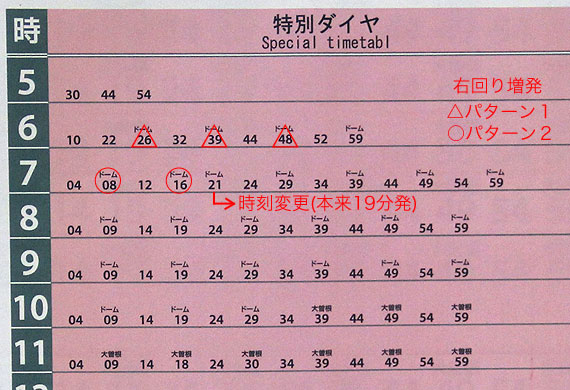 時 特別ダイヤ
Special timetabl
5
30 44 54
右回り増発
△パターン1
○パターン2
6
ドーム ドーム ドーム ドーム
10 22 26 32 39 44 48 52 59
7
ドーム ドーム ドーム ドーム ドーム ドーム ドーム
04 08 12 16 21 24 29 34 39 44 49 54 59
時刻変更(本来19分発)
8
ドーム ドーム ドーム ドーム ドーム ドーム
04 09 14 19 24 29 34 39 44 49 54 59
9
ドーム ドーム ドーム ドーム ドーム ドーム
04 09 14 19 24 29 34 39 44 49 54 59
10
ドーム ドーム ドーム 大曽根 大曽根 大曽根
04 09 14 19 24 29 34 39 44 49 54 59
11
大曽根 大曽根 大曽根 大曽根 大曽根 大曽根
04 09 14 18 24 30 34 39 44 49 54 59